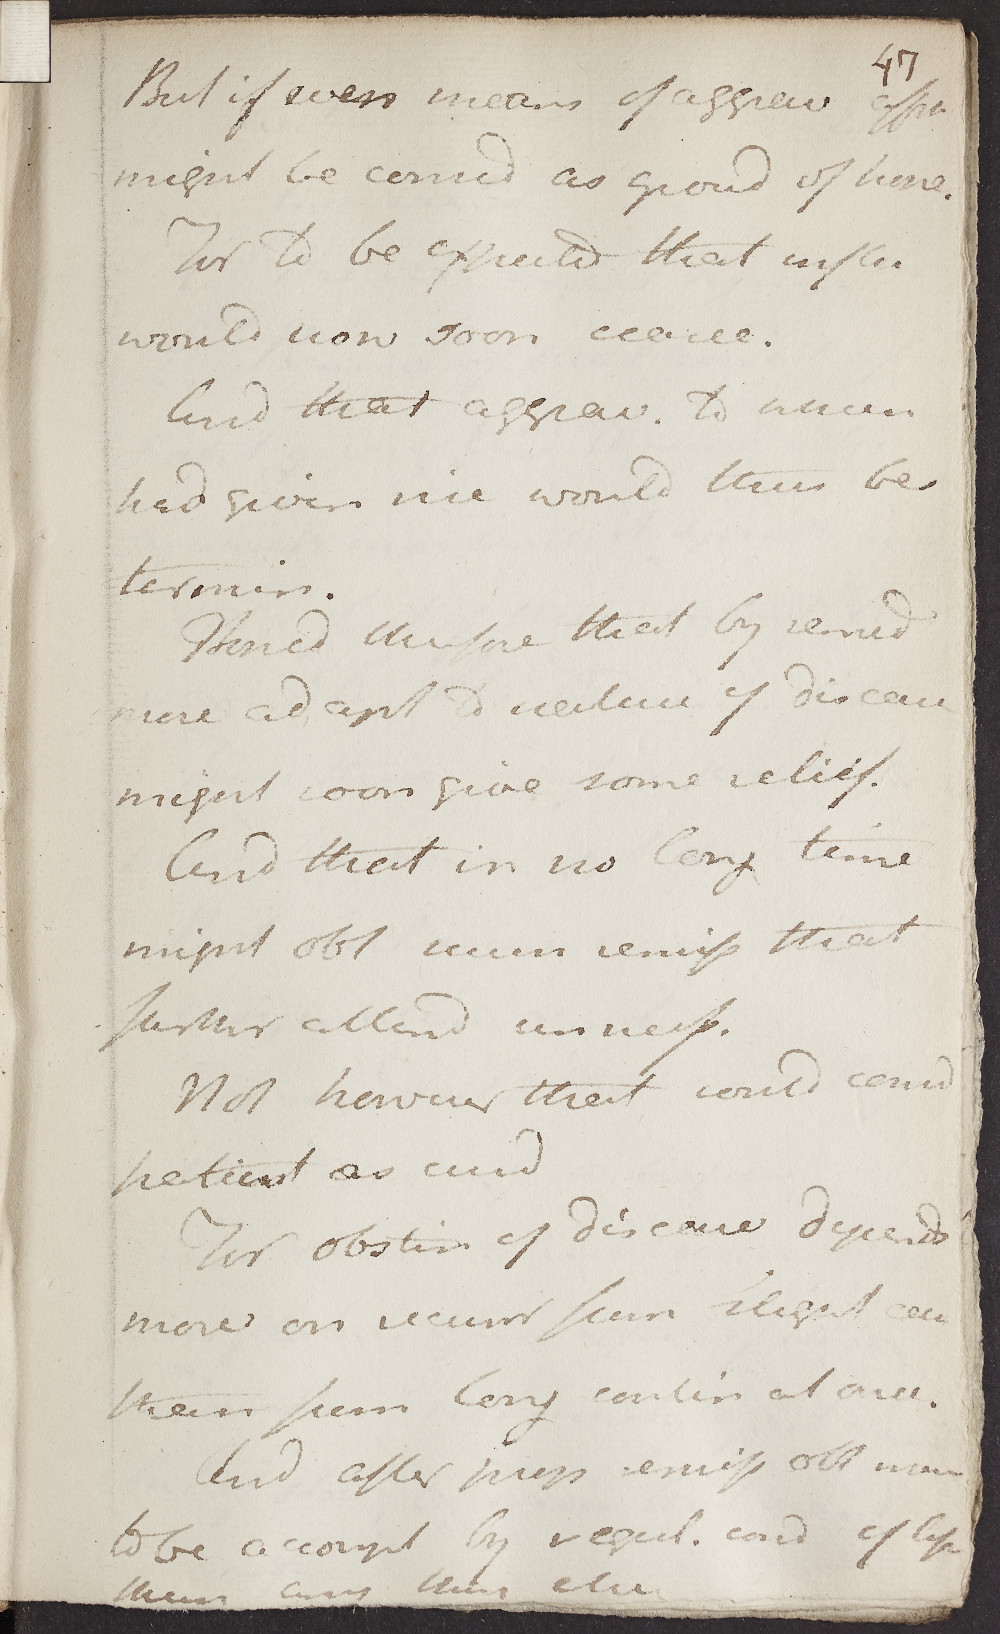 47
But if even means of aggrav
might be consid as ground of hope.
For to be expected that influ
would now soon cease.
And that aggrav. to which
had given rise would thus be
termin.
Hoped therefore that by remed
more adapt to nature of disease
might soon give some relief.
And that in no long time
might obt such remiss that
further attend unness.
Not however that could consid
patient as cured
For obstin of disease depends
more on recurr from slight cau
than from long contin at once.
And after pres remiss obt
to be accompt by regul. cond of life
than any thing else